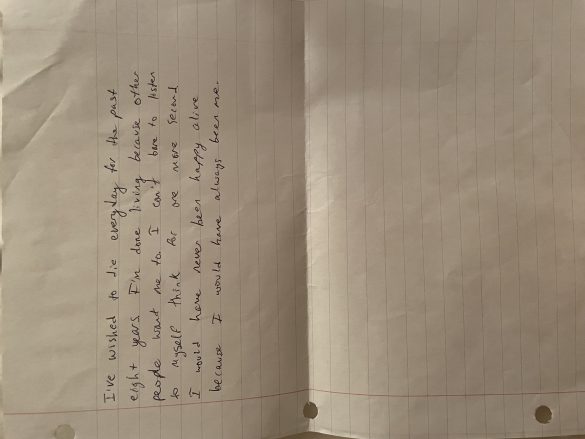 I've wished to die everyday for the past
eight years. I'm done living because other
people want me to. I can't bare to listen
to myself think for one more second
I would have never been happy alive
because I would have always been me.